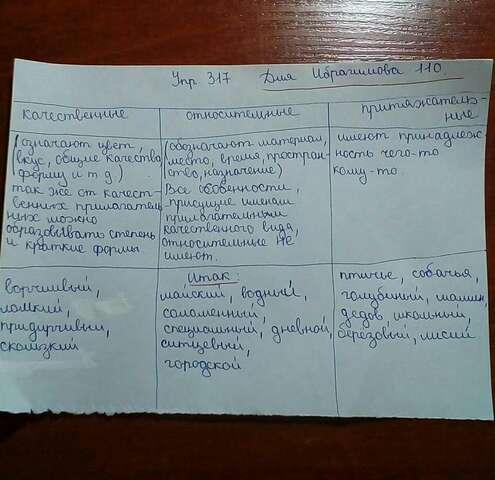 Упр. 317 Дмя Ибрагимова 110.
качественные
относительные
притяжатель-
ные
(означают цвет,
вкус, общие качества
форму и т д)
так же от качест-
венных прилагатель
ных можно
образовывать степень
и краткие формы
(обозначают материал,
место, время, простран-
ство, назначение)
Все обобенности,
присущие именам
прилагательным
качественного вида,
относительные не
имеют.
имеют принадлеж-
ность чего-то
кому-то.
ворчливый,
ломкий,
придирчивый,
скользкий
Итак:
майский, водный,
соломенный,
специальный, дневной,
ситцевый,
городской
птичье, собачья,
голубиный, мамин,
дедов школьный,
березовый, лисий